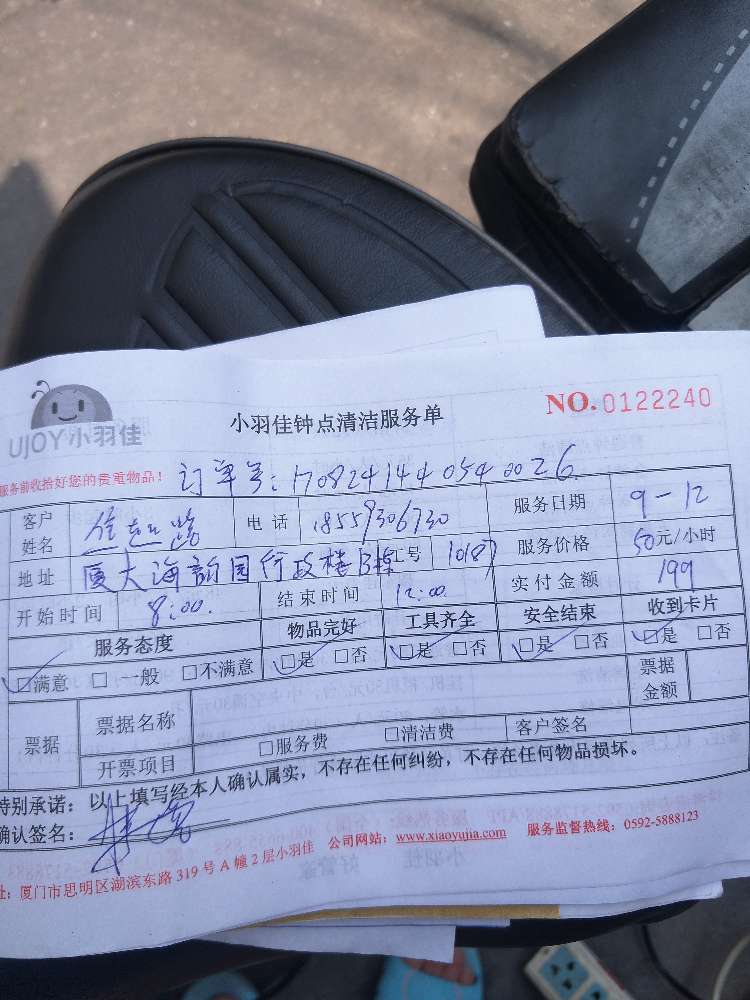 UJOY小羽佳
小羽佳钟点清洁服务单
NO.0122240
服务前收拾好您的贵重物品!
订单号:1708241440540026
客户姓名 电话 18559306730 服务日期 9-12
地址 厦大海韵园行政楼B栋 工号 10187 服务价格 50元/小时
开始时间 8:00. 结束时间 12:00 实付金额 199
服务态度 物品完好 工具齐全 安全结束 收到卡片
□满意 □一般 □不满意 □是 □否 □是 □否 □是 □否 □是 □否
票据 票据名称 票据金额
开票项目 □服务费 □清洁费 客户签名
特别承诺:以上填写经本人确认属实,不存在任何纠纷,不存在任何物品损坏。
确认签名:
址:厦门市思明区湖滨东路319号A幢2层小羽佳 公司网站:www.xiaoyujia.com 服务监督热线:0592-5888123